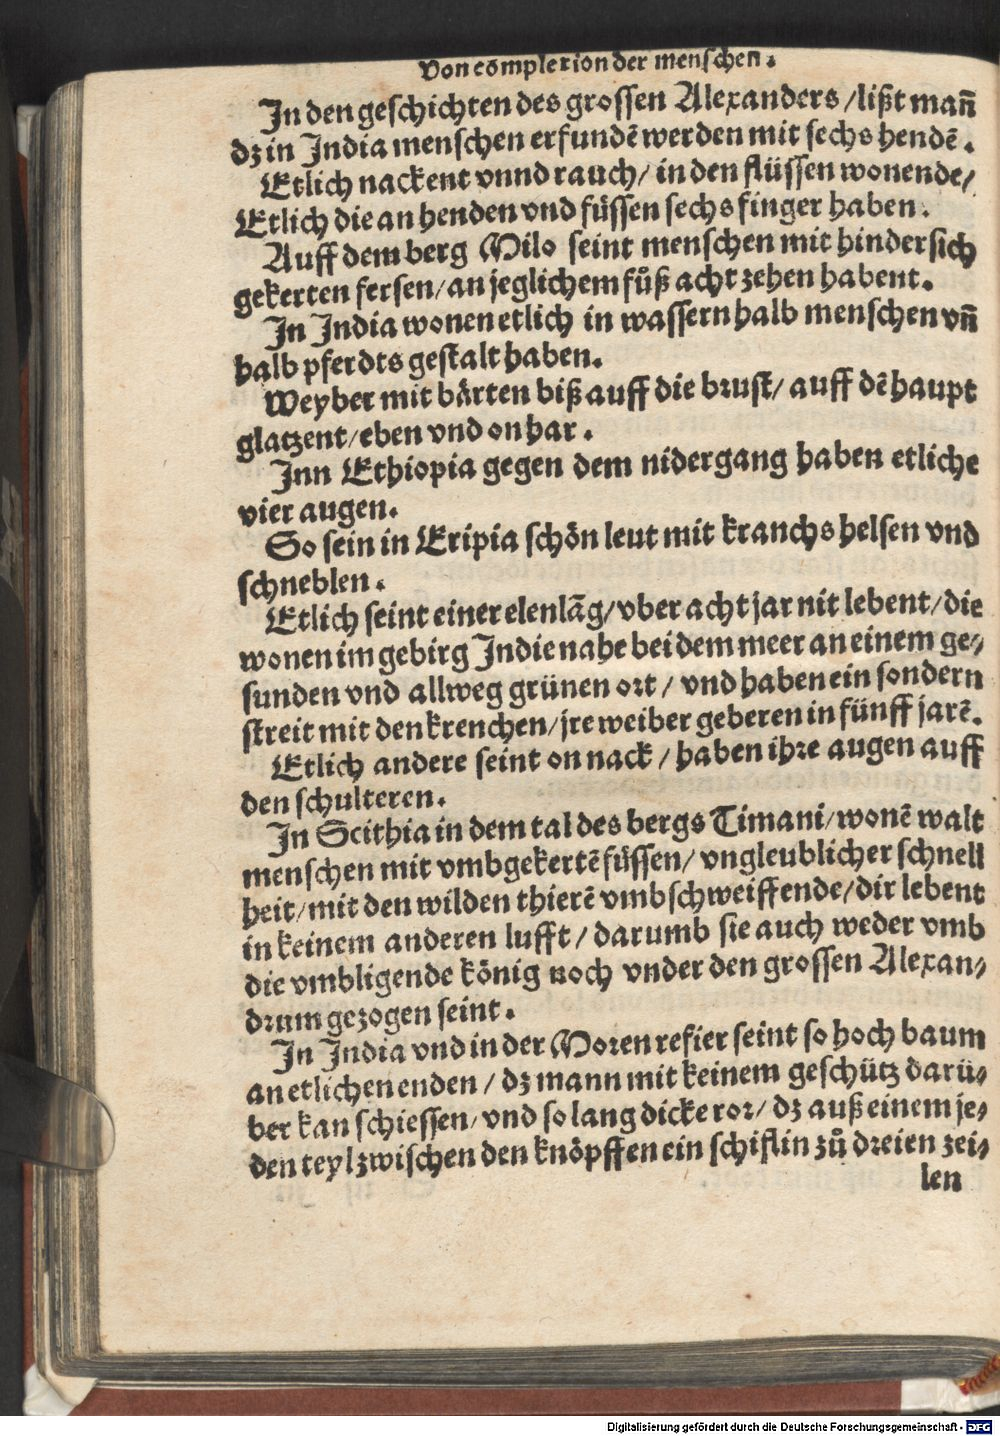 Von cōmplexion der menschen.
In den geschichten des grossen Alexanders /lißt mañ
dz in India menschen erfundē werden mit sechs hendē.
Etlich nackent vnnd rauch/ in den flüssen wonende/
Etlich die an henden vnd füssen sechs finger haben.
Auff dem berg Milo seint menschen mit hindersich
gekerten fersen/ an jeglichem fůß acht zehen habent.
In India wonen etlich in wassern halb menschen vñ
halb pferdts gestalt haben.
Weyber mit bårten biß auff die brust/ auff dē haupt
glatzent/eben vnd on har.
Jnn Ethiopia gegen dem nidergang haben etliche
vier augen.
So sein in Eripia schön leut mit kranchs helsen vnd
schneblen.
Etlich seint einer elen lāg/vber acht jar nit lebent/die
wonen im gebirg Indie nahe bei dem meer an einem ge⸗
sunden vnd allweg grünen ort / vnd haben ein sondern
streit mit den krenchen/jre weiber geberen in fünff jarē.
Etlich andere seint on nack / haben ihre augen auff
den schulteren.
In Scithia in dem tal des bergs Timani/wonē walt
menschen mit vmbgekertē füssen/ vngleublicher schnell
heit/mit den wilden thierē vmbschweiffende/dir lebent
in keinem anderen lufft / darumb sie auch weder vmb
die vmbligende könig noch vnder den grossen Alexan⸗
drum gezogen seint.
In India vnd in der Moren refier seint so hoch baum
an etlichen enden / dz mann mit keinem geschütz darü⸗
ber kan schiessen/ vnd so lang dicke ror/ dz auß einem je⸗
den teyl zwischen den knöpffen ein schiflin zů dreien zei⸗
len
Digitalisierung gefördert durch die Deutsche Forschungsgemeinschaft - DFG